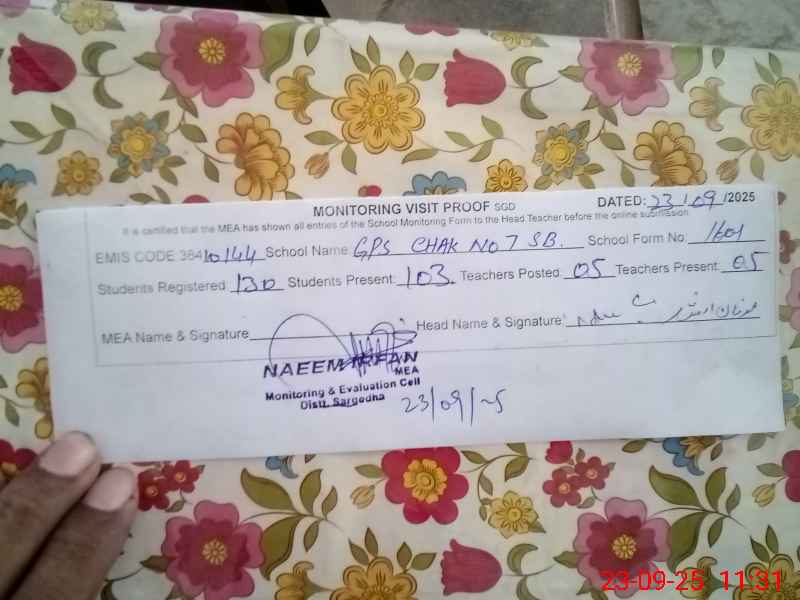 MONITORING VISIT PROOF SGD DATED: 23/09/2025
It is certified that the MEA has shown all entries of the School Monitoring Form to the Head Teacher before the online submission
EMIS CODE 38410144 School Name GPS CHAK NO 7 SB. School Form No. 1601
Students Registered 130 Students Present 103. Teachers Posted 05 Teachers Present 05
MEA Name & Signature Head Name & Signature
NAEEM IRFAN
MEA
Monitoring & Evaluation Cell
Distt. Sargodha
23/09/25
23-09-25 11:31